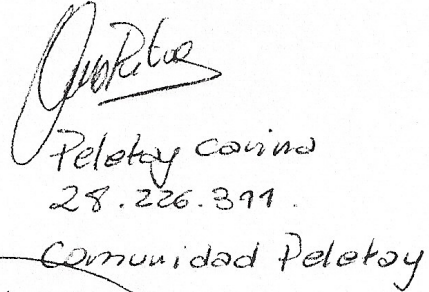 Peletay Carina
28.226.311.
Comunidad Peletay